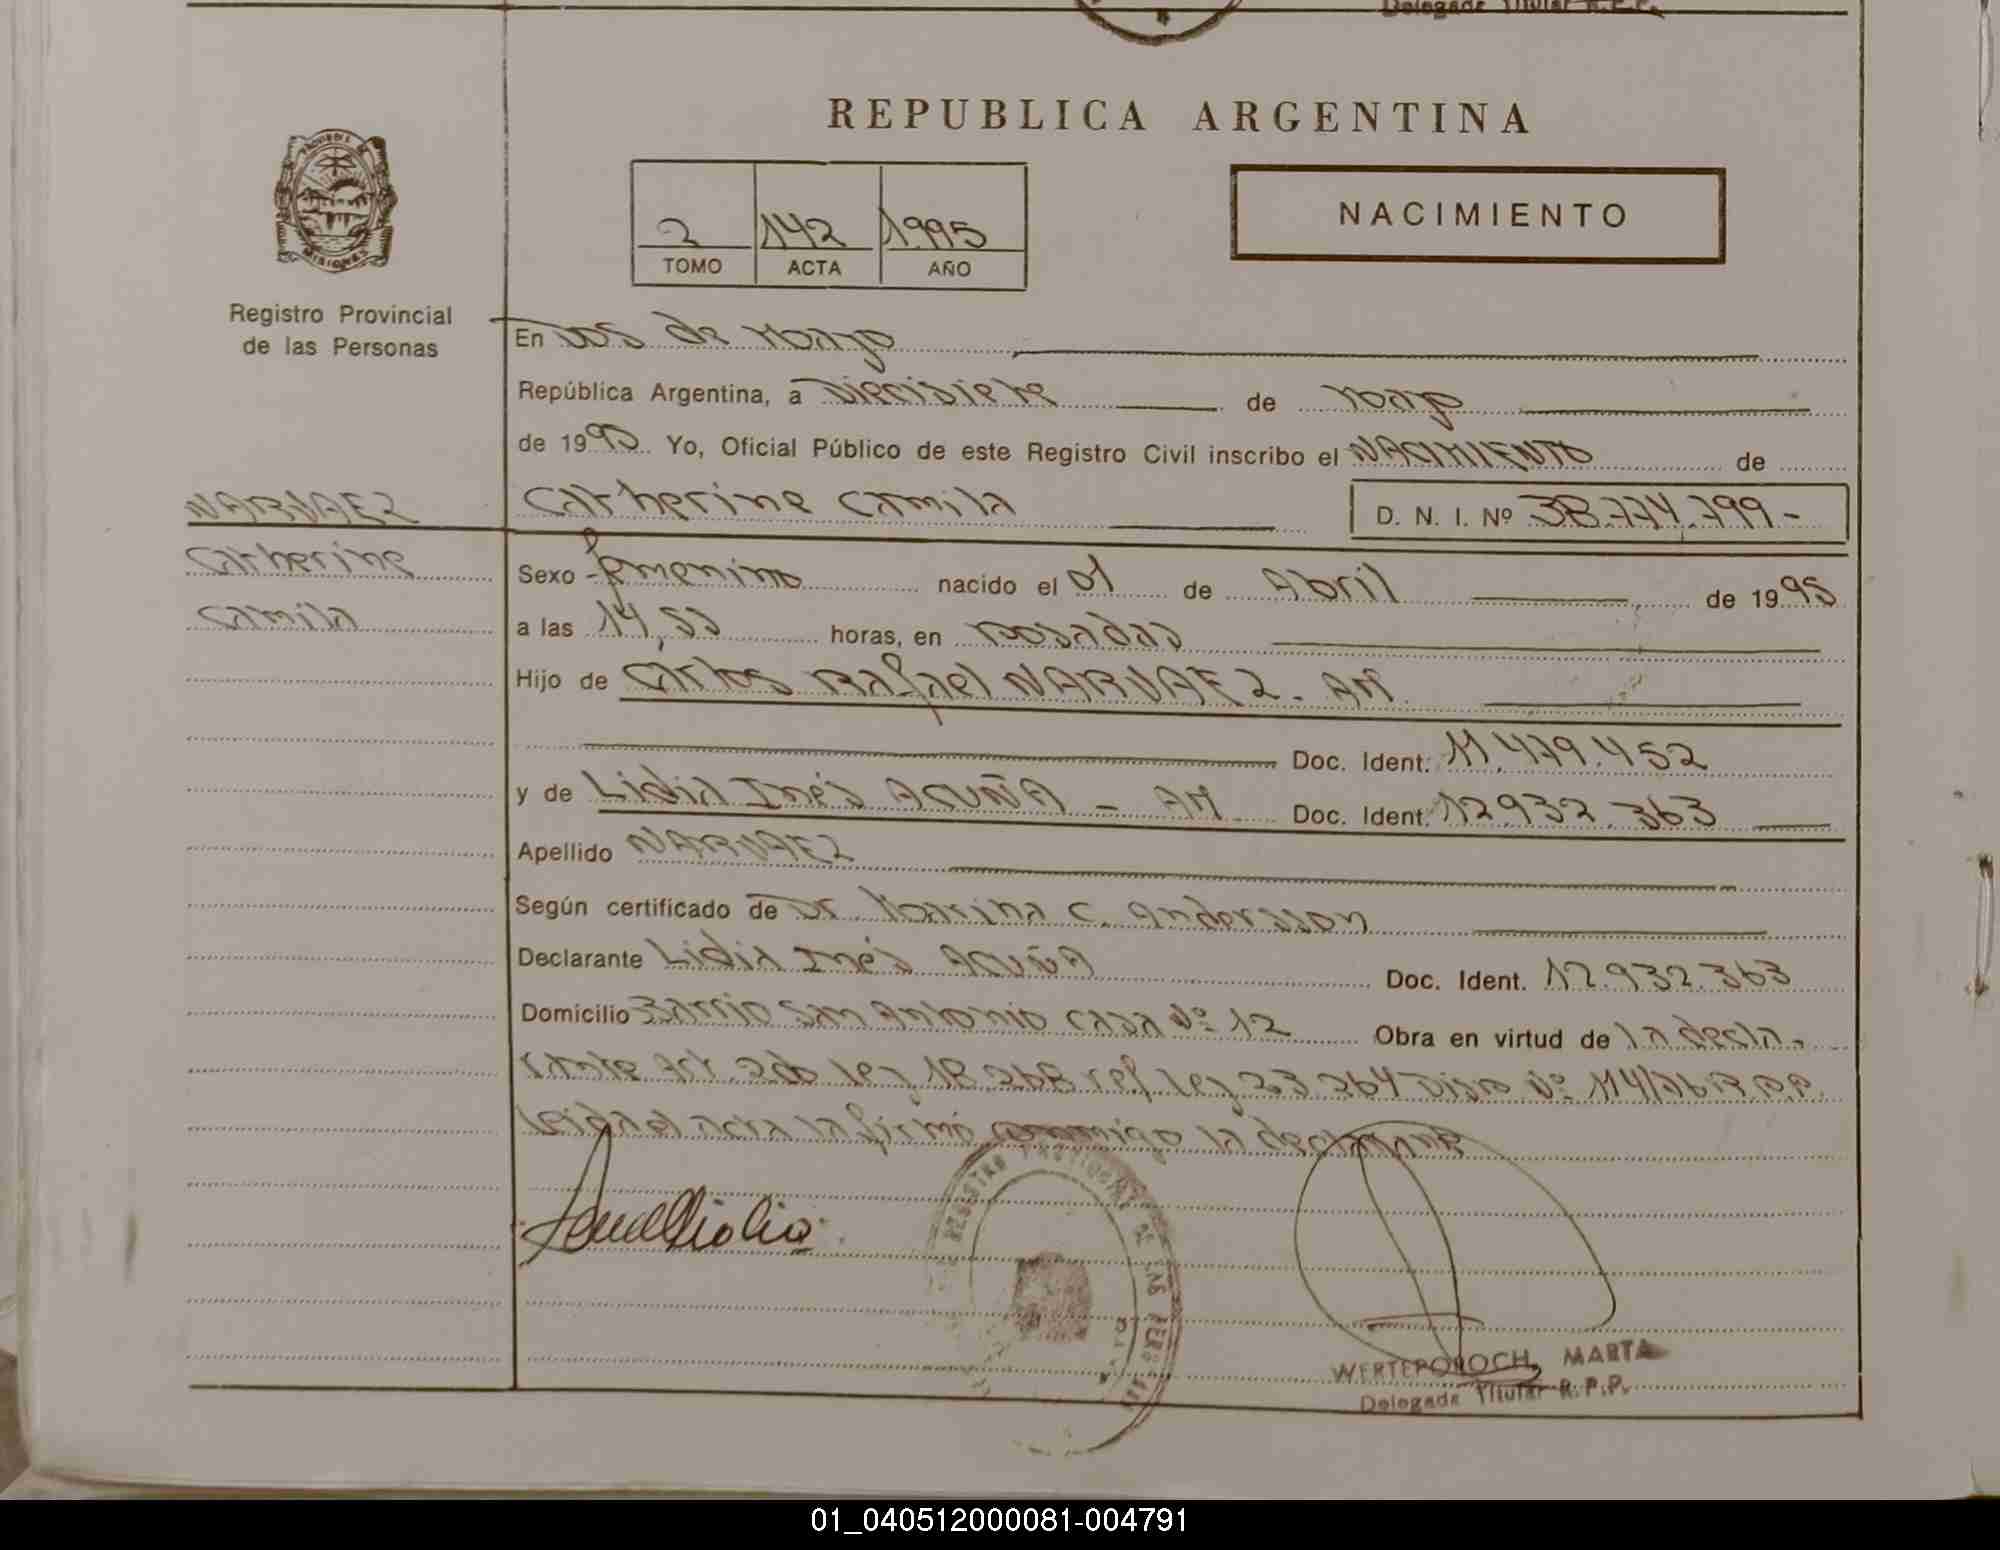 Delegada Titular R.P.P.
REPUBLICA ARGENTINA
NACIMIENTO
2 142 1995
TOMO ACTA AÑO
PROVINCIA DE MISIONES
Registro Provincial
de las Personas
En Dos de Mayo
República Argentina, a Diecisiete de Mayo
de 1995 Yo, Oficial Público de este Registro Civil inscribo el NACIMIENTO de
NARVAEZ
Catherine Camila D. N. I. Nº 38.774.799-
Catherine
Camila
Sexo femenino nacido el 01 de Abril de 1995
a las 14,55 horas, en Posadas
Hijo de Carlos Rafael NARVAEZ - AM.
Doc. Ident: 11.479.452
y de Lidia Inés ACUÑA - AM Doc. Ident: 12.932.363
Apellido NARVAEZ
Según certificado de Dr. Marina C. Andersson
Declarante Lidia Inés ACUÑA Doc. Ident. 12.932.363
Domicilio Barrio San Antonio casa Nº 12 Obra en virtud de la decla-
rante Art. 2do ley 18.248 ref ley 23.264 Disp Nº 114/86 R.P.P.
Leida el acta la firmó conmigo la declarante
REGISTRO PROVINCIAL DE LAS PERSONAS
WERTEPOROCH, MARTA
Delegada Titular R.P.P.
01_040512000081-004791